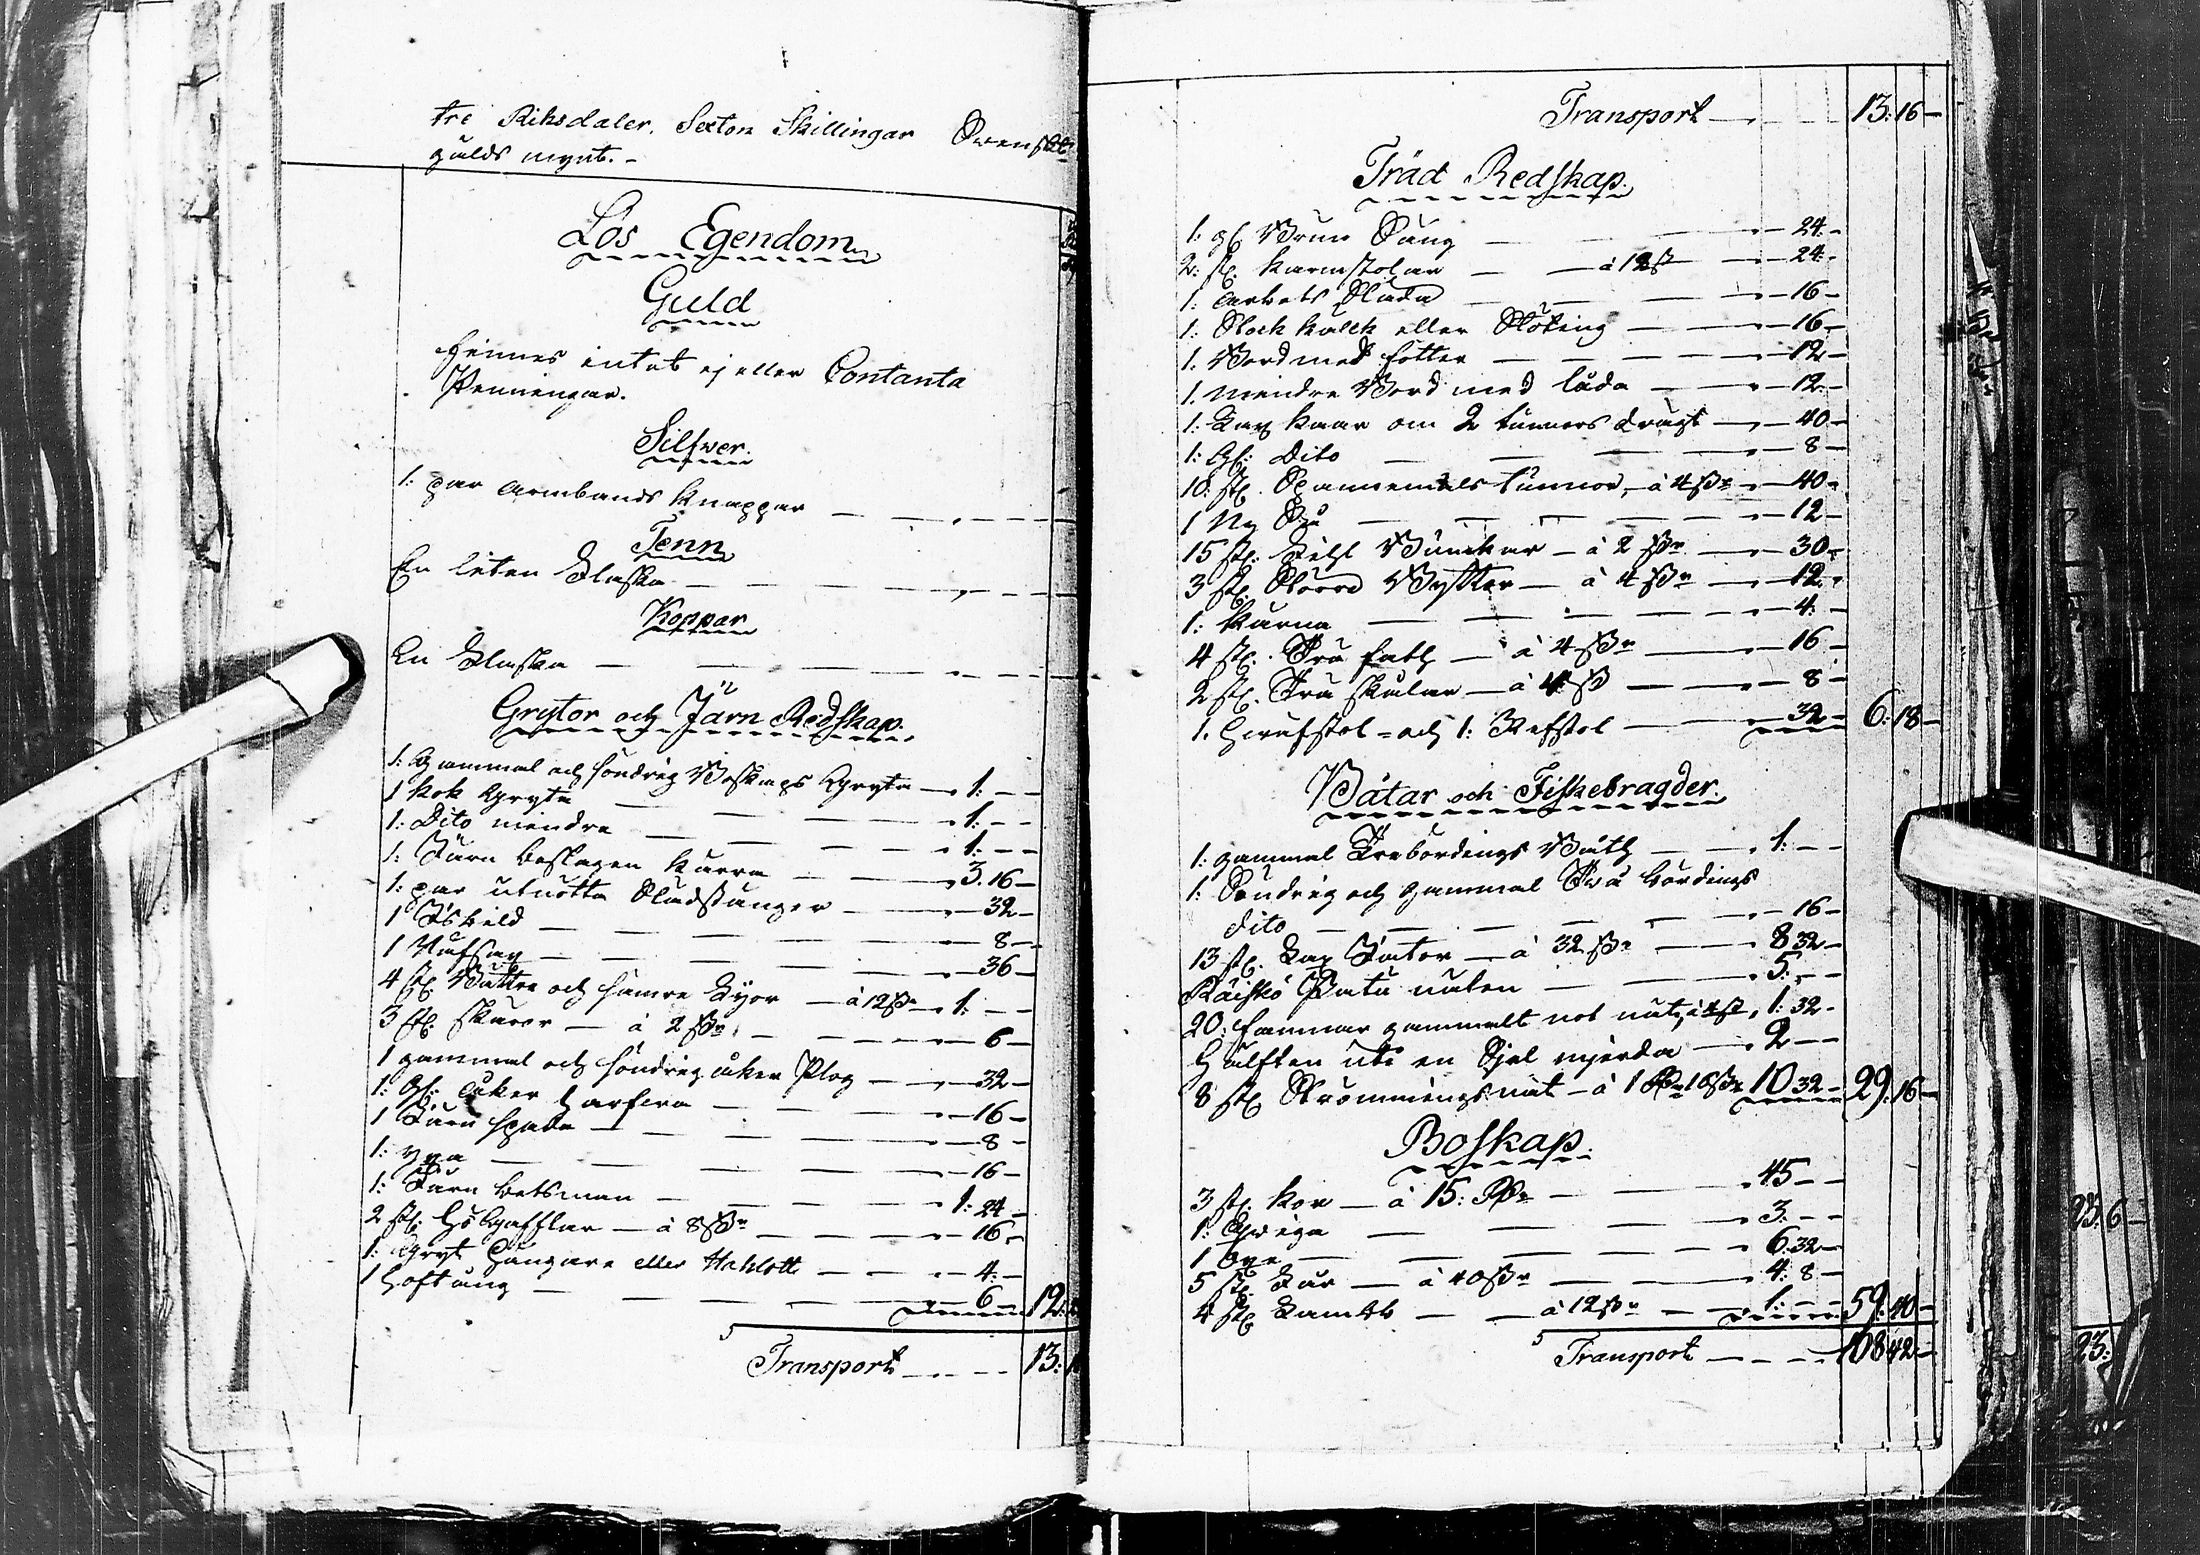 tre Riksdaler. Sexton Skillingar Svenskt
gulds mynt. -
Lös Egendom
Guld
Finnes intet ej eller Contanta
Penningar.
Silfver.
1: par armbands knappar
Tenn
En liten Flaska
Koppar
En Flaska
Grytor och Järn Redskap.
1: Gammal och söndrig Boskaps Gryta — 1: —
1 kok Gryta — 1: —
1: Dito mindre — 1: —
1: Järn beslagen kärra — 3. 16 —
1: par utnötta Slädstänger — 32 —
1 Isbild — 8 —
1 Stufsåg — 36 —
4 st. Bättre och sämre Lyor — à 12 sk — 1: —
3 st. skäror — à 2 sk. — 6 —
1 gammal och söndrig åker Plog — 32 —
1: Gl: åker Harf — 16 —
1 Järn spada — 8 —
1: yxa — 16 —
1: Järn betsman — 1: 24 —
2 st. Hö Gafflar — à 8 sk — 16 —
1: Gryt Hängare eller — 4: —
1 Hoftång — 6 — 12:
Transport — 13: 1
Transport — 13: 16 —
Träd Redskap.
1: gl. Brun Säng — 24 —
2: st. karmstolar — à 12 sk — 24 —
1: arbets Släda — 16 —
1: Stock kälck eller Stöting — 16 —
1. Bord med fötter — 12 —
1. mindre Bord med låda — 12 —
1: Lax kaar om 2 tunnors drägt — 40 —
1: Gl: Dito — 8 —
10 st. Spannemåls tunnor, à 4 sk — 40 —
1 Ny Så — 12 —
15 st. Fihl Bunckar — à 2 sk — 30 —
3 st. Större Byttor — à 4 sk — 12 —
1: kärna — 4: —
4 st. Trä fath — à 4 sk — 16 —
2 st. Trä skålar — à 4 sk — 8 —
1. Hväfstol - och 1: Refstol — 32 — 6: 18 —
Båtar och Fiskebragder.
1: gammal Trebördings Båth — 1: —
1: Söndrig och gammal Två bördings
dito — 16 —
13 st. Lax — à 32 sk — 8 32 —
Räiskö Pata naten — 5: —
20: famnar gammalt not nät, à 4 sk, 1: 32 —
Hälften uti en Själ mjerda — 2 —
8 st. Strömmings nät — à 1 Rdr 16 sk 10 32 — 29: 16 —
Boskap.
3 st. kor — à 15: Rdr — 45 —
1: Qviga — 3: —
1 Oxe — 6. 32 —
5 st. Får — à 40 sk — 4: 8 —
4 st. Lamb — à 12 sk — 1: — 59: 40 —
Transport — 108 42 —
23. 6 —
23: